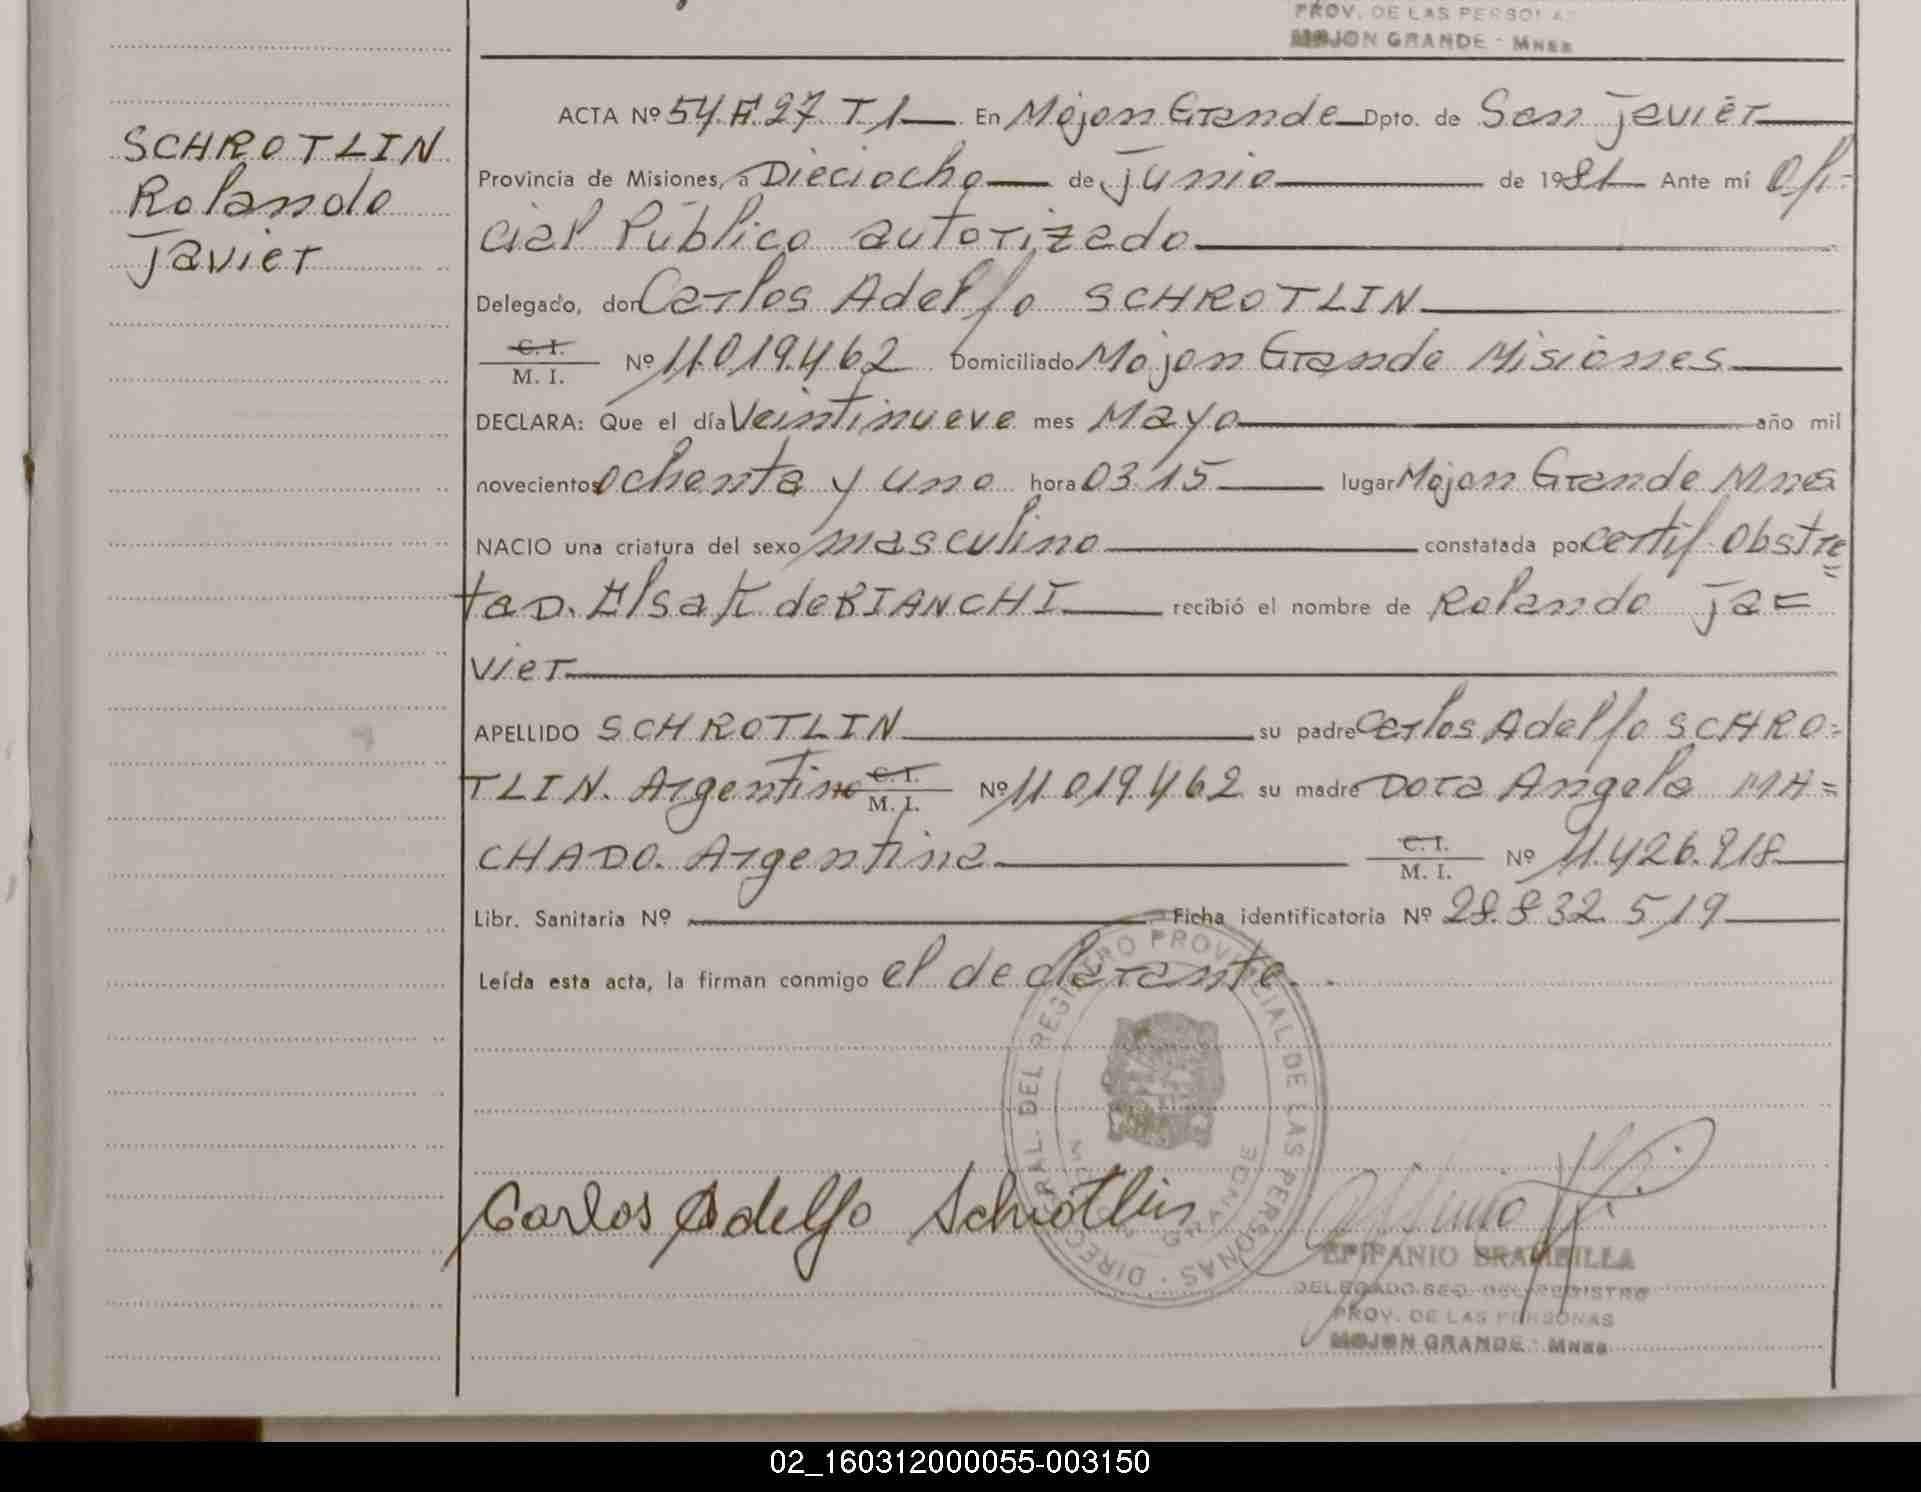 PROV. DE LAS PERSONAS
MOJON GRANDE - Mnes
SCHROTLIN
Rolando
Javier
ACTA Nº 54. F. 27 T. 1 En Mojon Grande Dpto. de San Javier
Provincia de Misiones, a Dieciocho de junio de 1981 Ante mí Ofi-
cial Público autorizado
Delegado, don Carlos Adelfo SCHROTLIN
C. I.
M. I. Nº 11.019.462 Domiciliado Mojon Grande Misiones
DECLARA: Que el día Veintinueve mes Mayo año mil
novecientos ochenta y uno hora 03.15 lugar Mojon Grande Mnes
NACIO una criatura del sexo masculino constatada por certif. Obstre
ta D. Elsa K. de BIANCHI recibió el nombre de Rolando Ja=
vier
APELLIDO SCHROTLIN su padre Carlos Adelfo SCHRO-
TLIN. Argentino C. I. M. I. Nº 11.019.462 su madre Dora Angela MA=
CHADO. Argentina C. I. M. I. Nº 11.426.918
Libr. Sanitaria Nº Ficha identificatoria Nº 28.832.519
Leída esta acta, la firman conmigo el declarante.
DIREC. GRAL. DEL REGISTRO PROVINCIAL DE LAS PERSONAS
MOJON GRANDE
Carlos Adelfo Schrotlin
EPIFANIO BRAMBILLA
DELEGADO SEQ. DEL REGISTRO
PROV. DE LAS PERSONAS
MOJON GRANDE - Mnes
02_160312000055-003150